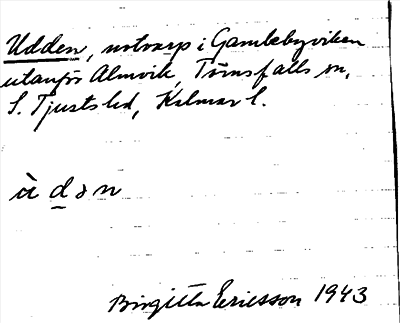 Udden, notvarp i Gamlebyviken
utanför Almvik, Törnsfalls sn,
S. Tjusts hd, Kalmar l.
ù d ə n
Birgitta Ericsson 1943